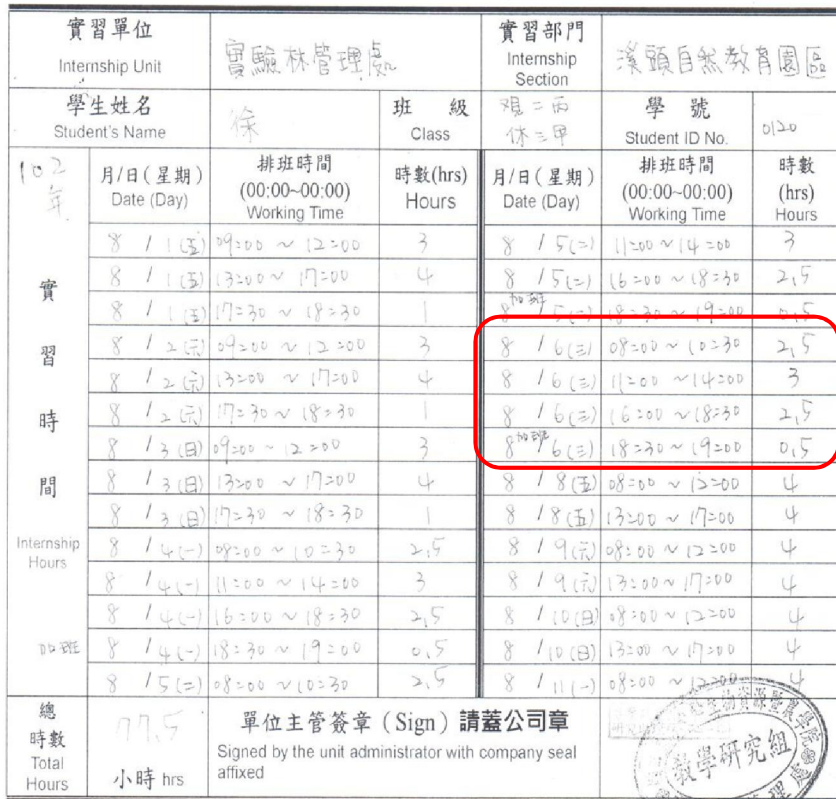 實習單位 Internship Unit 實驗林管理處 實習部門 Internship Section 溪頭自然教育園區
學生姓名 Student's Name 徐 班 級 Class 觀二丙 休三甲 學 號 Student ID No. 0120
102年 月/日(星期) Date (Day) 排班時間 (00:00~00:00) Working Time 時數(hrs) Hours 月/日(星期) Date (Day) 排班時間 (00:00~00:00) Working Time 時數 (hrs) Hours
實習時間 Internship Hours
8/1(五) 09:00 ~ 12:00 3 8/5(二) 11:00 ~ 14:00 3
8/1(五) 13:00 ~ 17:00 4 8/5(二) 16:00 ~ 18:30 2,5
8/1(五) 17:30 ~ 18:30 1 加班 8/5(二) 18:30 ~ 19:00 0,5
8/2(六) 09:00 ~ 12:00 3 8/6(三) 08:00 ~ 10:30 2,5
8/2(六) 13:00 ~ 17:00 4 8/6(三) 11:00 ~ 14:00 3
8/2(六) 17:30 ~ 18:30 1 8/6(三) 16:00 ~ 18:30 2,5
8/3(日) 09:00 ~ 12:00 3 加班 8/6(三) 18:30 ~ 19:00 0,5
8/3(日) 13:00 ~ 17:00 4 8/8(五) 08:00 ~ 12:00 4
8/3(日) 17:30 ~ 18:30 1 8/8(五) 13:00 ~ 17:00 4
8/4(一) 08:00 ~ 10:30 2,5 8/9(六) 08:00 ~ 12:00 4
8/4(一) 11:00 ~ 14:00 3 8/9(六) 13:00 ~ 17:00 4
8/4(一) 16:00 ~ 18:30 2,5 8/10(日) 08:00 ~ 12:00 4
加班 8/4(一) 18:30 ~ 19:00 0,5 8/10(日) 13:00 ~ 17:00 4
8/5(二) 08:00 ~ 10:30 2,5 8/11(一) 08:00 ~ 12:00 4
總時數 Total Hours 77.5 小時 hrs 單位主管簽章(Sign)請蓋公司章
Signed by the unit administrator with company seal affixed
生物資源暨農學院
教學研究組
管理處